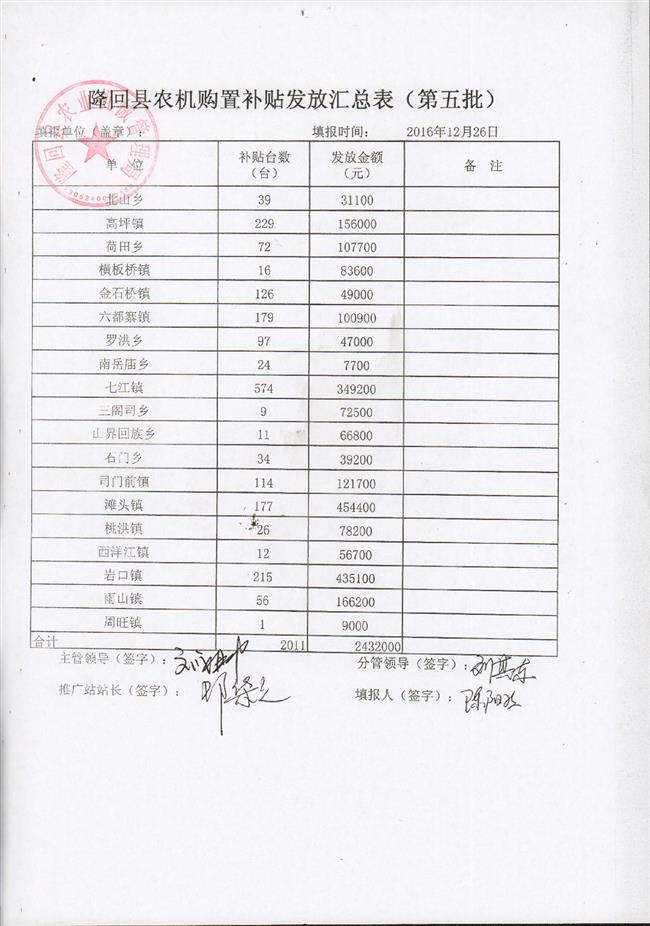 隆回县农机购置补贴发放汇总表（第五批）
填报单位（盖章）： 填报时间： 2016年12月26日
单 位 补贴台数（台） 发放金额（元） 备 注
北山乡 39 31100
高坪镇 229 156000
荷田乡 72 107700
横板桥镇 16 83600
金石桥镇 126 49000
六都寨镇 179 100900
罗洪乡 97 47000
南岳庙乡 24 7700
七江镇 574 349200
三阁司乡 9 72500
山界回族乡 11 66800
石门乡 34 39200
司门前镇 114 121700
滩头镇 177 454400
桃洪镇 26 78200
西洋江镇 12 56700
岩口镇 215 435100
雨山镇 56 166200
周旺镇 1 9000
合计 2011 2432000
主管领导（签字）： 分管领导（签字）：
推广站站长（签字）： 填报人（签字）：